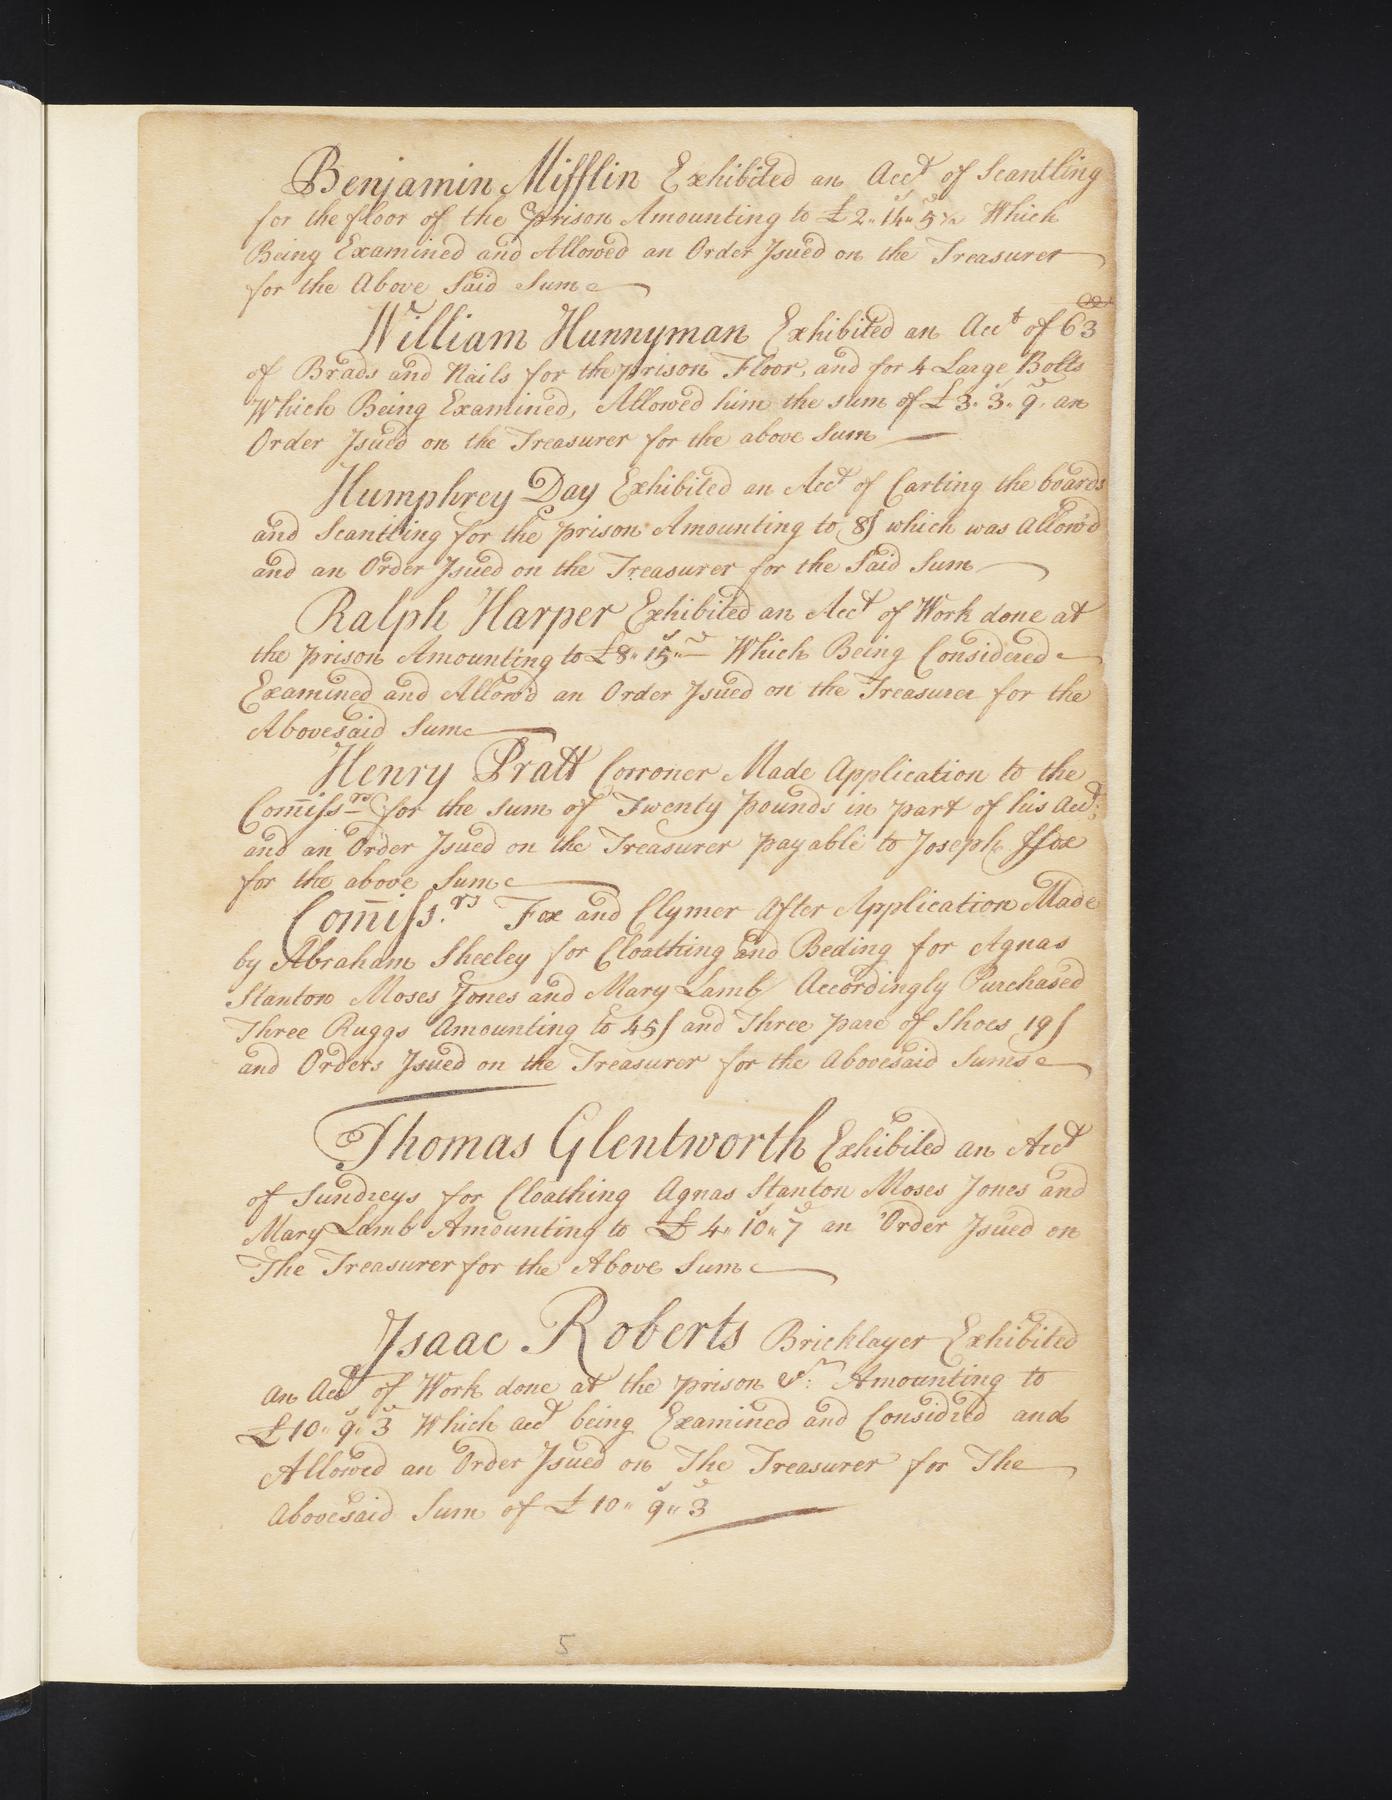 Benjamin Mifflin Exhibited an Acct of Scantling
for the floor of the prison Amounting to £2.. 14s.. 5d½ Which
Being Examined and Allowed an Order Isued on the Treasurer
for the Above Said Sume
William Hunnyman Exhibited an Acct of 63
of Brads and Nails for the prison Floor, and for 4 Large Bolts
Which Being Examined, Allowed him the sum of £3.. 3s.. 9d. an
Order Isued on the Treasurer for the above Sum
Humphrey Day Exhibited an Acct of Carting the boards
and Scantling for the prison Amounting to 8/ which was allow'd
and an Order Isued on the Treasurer for the Said Sum
Ralph Harper Exhibited an Acct of Work done at
the prison Amounting to £8.. 15s.. –d Which Being Considered
Examined and Allow'd an Order Isued on the Treasurer for the
Abovesaid Sume
Henry Pratt Corroner Made Application to the
Com̅issrs for the sum of Twenty pounds in part of his Acct:
and an Order Isued on the Treasurer payable to Joseph ffox
for the above Sume
Com̅iss.rs Fox and Clymer After Application Made
by Abraham Sheeley for Cloathing and Beding for Agnas
Stanton Moses Jones and Mary Lamb Accordingly Purchased
Three Ruggs Amounting to 45/ and Three pare of Shoes 19/
and Orders Isued on the Treasurer for the Abovesaid Sums
Thomas Glentworth Exhibited an Acct
of Sundreys for Cloathing Agnas Stanton Moses Jones and
Mary Lamb Amounting to £4.. 10s.. 7d an Order Isued on
The Treasurer for the Above Sum
Isaac Roberts Bricklayer Exhibited
an Acct of Work done at the prison &c: Amounting to
£10.. 9s.. 3d Which acct being Examined and Considred and
Allowed an Order Isued on The Treasurer for The
abovesaid Sum of £10.. 9s.. 3d
5